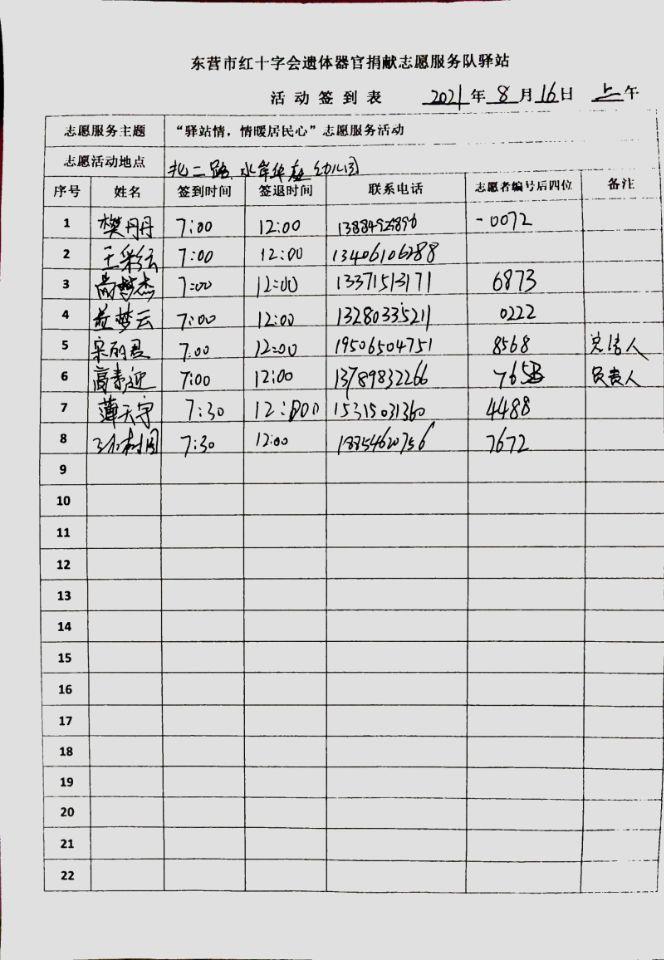 东营市红十字会遗体器官捐献志愿服务队驿站
活动签到表 2021年8月16日 上午
志愿服务主题 “驿站情，情暖居民心”志愿服务活动
志愿活动地点 北二路 水岸华庭 幼儿园
序号 姓名 签到时间 签退时间 联系电话 志愿者编号后四位 备注
1 樊丹丹 7:00 12:00 -0072
2 王彩云 7:00 12:00 13406106288
3 7:00 12:00 13371513171 6873
4 梦云 7:00 12:00 13280335211 0222
5 宋丽君 7.00 12:00 19506504751 8568 人
6 高素迎 7:00 12:00 13789832266 765 负责人
7 薄天宇 7:30 12:00 15315031360 4488
8 7:30 12:00 18854620756 7672
9
10
11
12
13
14
15
16
17
18
19
20
21
22